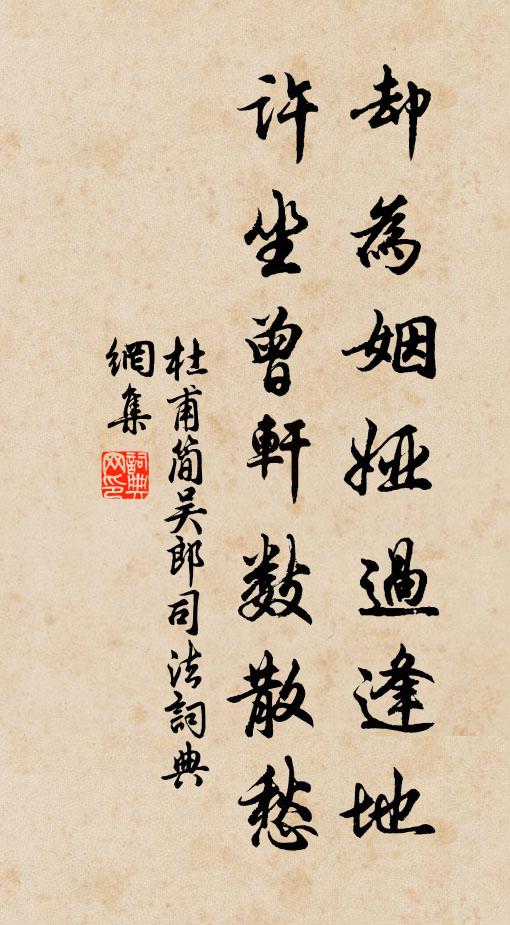 却為姻婭過逢地
許坐曾軒數散愁
杜甫簡吳郎司法詞典
網集
詞典
网印